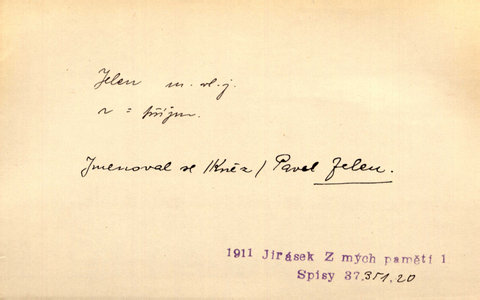 Jelen m. vl. j.
v = příjm.
Jmenoval se /Kněz/ Pavel Jelen.
1911 Jirásek Z mých pamětí 1
Spisy 37.351.20